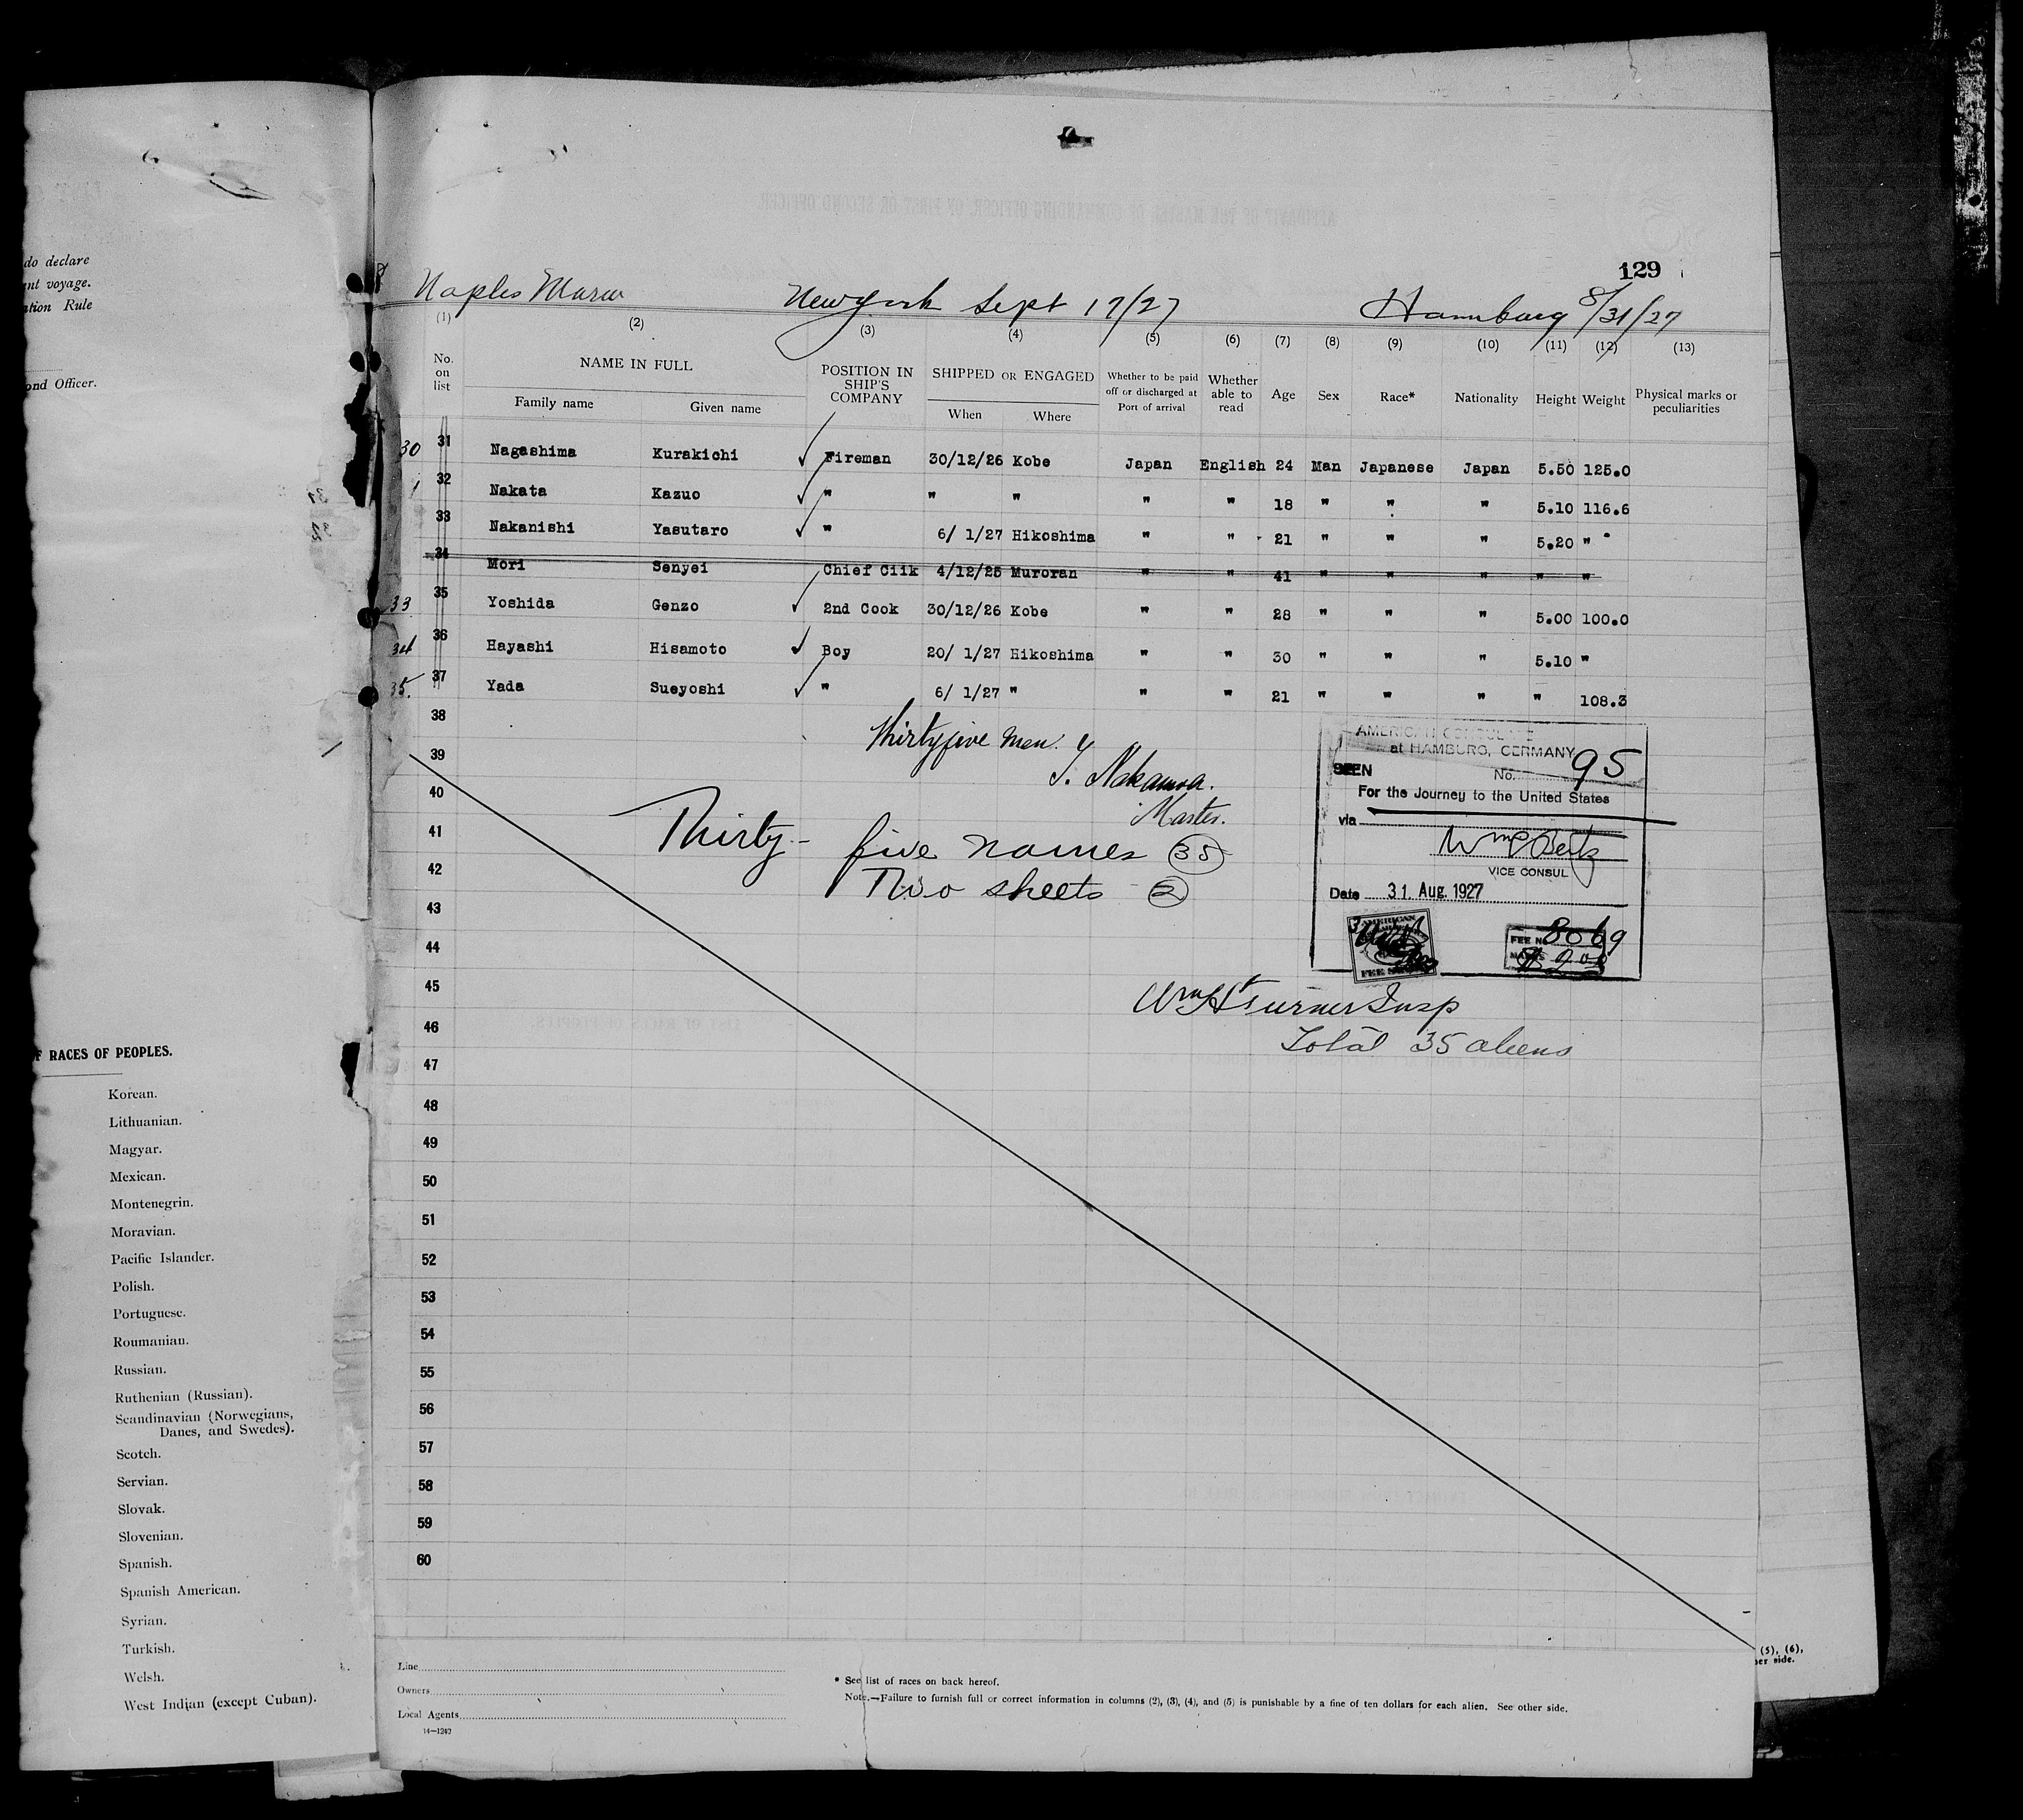 do declare
nt voyage.
ation Rule
ond Officer.
F RACES OF PEOPLES.
Korean.
Lithuanian.
Magyar.
Mexican.
Montenegrin.
Moravian.
Pacific Islander.
Polish.
Portuguese.
Roumanian.
Russian.
Ruthenian (Russian).
Scandinavian (Norwegians,
Danes, and Swedes).
Scotch.
Servian.
Slovak.
Slovenian.
Spanish.
Spanish American.
Syrian.
Turkish.
Welsh.
West Indian (except Cuban).
129
Naples Maru New York Sept 17/27 Hamburg 8/31/27
(1) (2) (3) (4) (5) (6) (7) (8) (9) (10) (11) (12) (13)
No. on list NAME IN FULL POSITION IN SHIP'S COMPANY SHIPPED OR ENGAGED Whether to be paid off or discharged at Port of arrival Whether able to read Age Sex Race* Nationality Height Weight Physical marks or peculiarities
Family name Given name When Where
30 31 Nagashima Kurakichi Fireman 30/12/26 Kobe Japan English 24 Man Japanese Japan 5.50 125.0
1 32 Nakata Kazuo " " " " " 18 " " " 5.10 116.6
33 Nakanishi Yasutaro " 6/ 1/27 Hikoshima " " 21 " " " 5.20 "
34 Mori Senyei Chief Ciik 4/12/25 Muroran " " 41 " " " " "
33 35 Yoshida Genzo 2nd Cook 30/12/26 Kobe " " 28 " " " 5.00 100.0
34 36 Hayashi Hisamoto Boy 20/ 1/27 Hikoshima " " 30 " " " 5.10 "
35. 37 Yada Sueyoshi " 6/ 1/27 " " " 21 " " " " 108.3
38
Thirtyfive men.
39
40
41
42
43
44
45
46
47
48
49
50
51
52
53
54
55
56
57
58
59
60
Master.
Thirty- five names 35
Two sheets - 2
AMERICAN CONSULATE
at HAMBURG, GERMANY
SEEN No. 95
For the Journey to the United States
via
VICE CONSUL
Date 31. Aug. 1927
AMERICAN
FEE No. 8069
Wm H Turner Insp
Total 35 aliens
Line
Owners
Local Agents
14—1240
* See list of races on back hereof.
Note.—Failure to furnish full or correct information in columns (2), (3), (4), and (5) is punishable by a fine of ten dollars for each alien. See other side.
(5), (6),
her side.